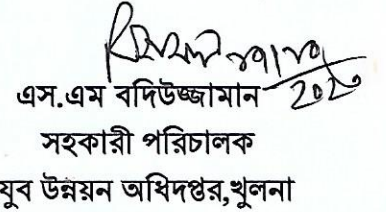 এস.এম বদিউজ্জামান
সহকারী পরিচালক
যুব উন্নয়ন অধিদপ্তর,খুলনা